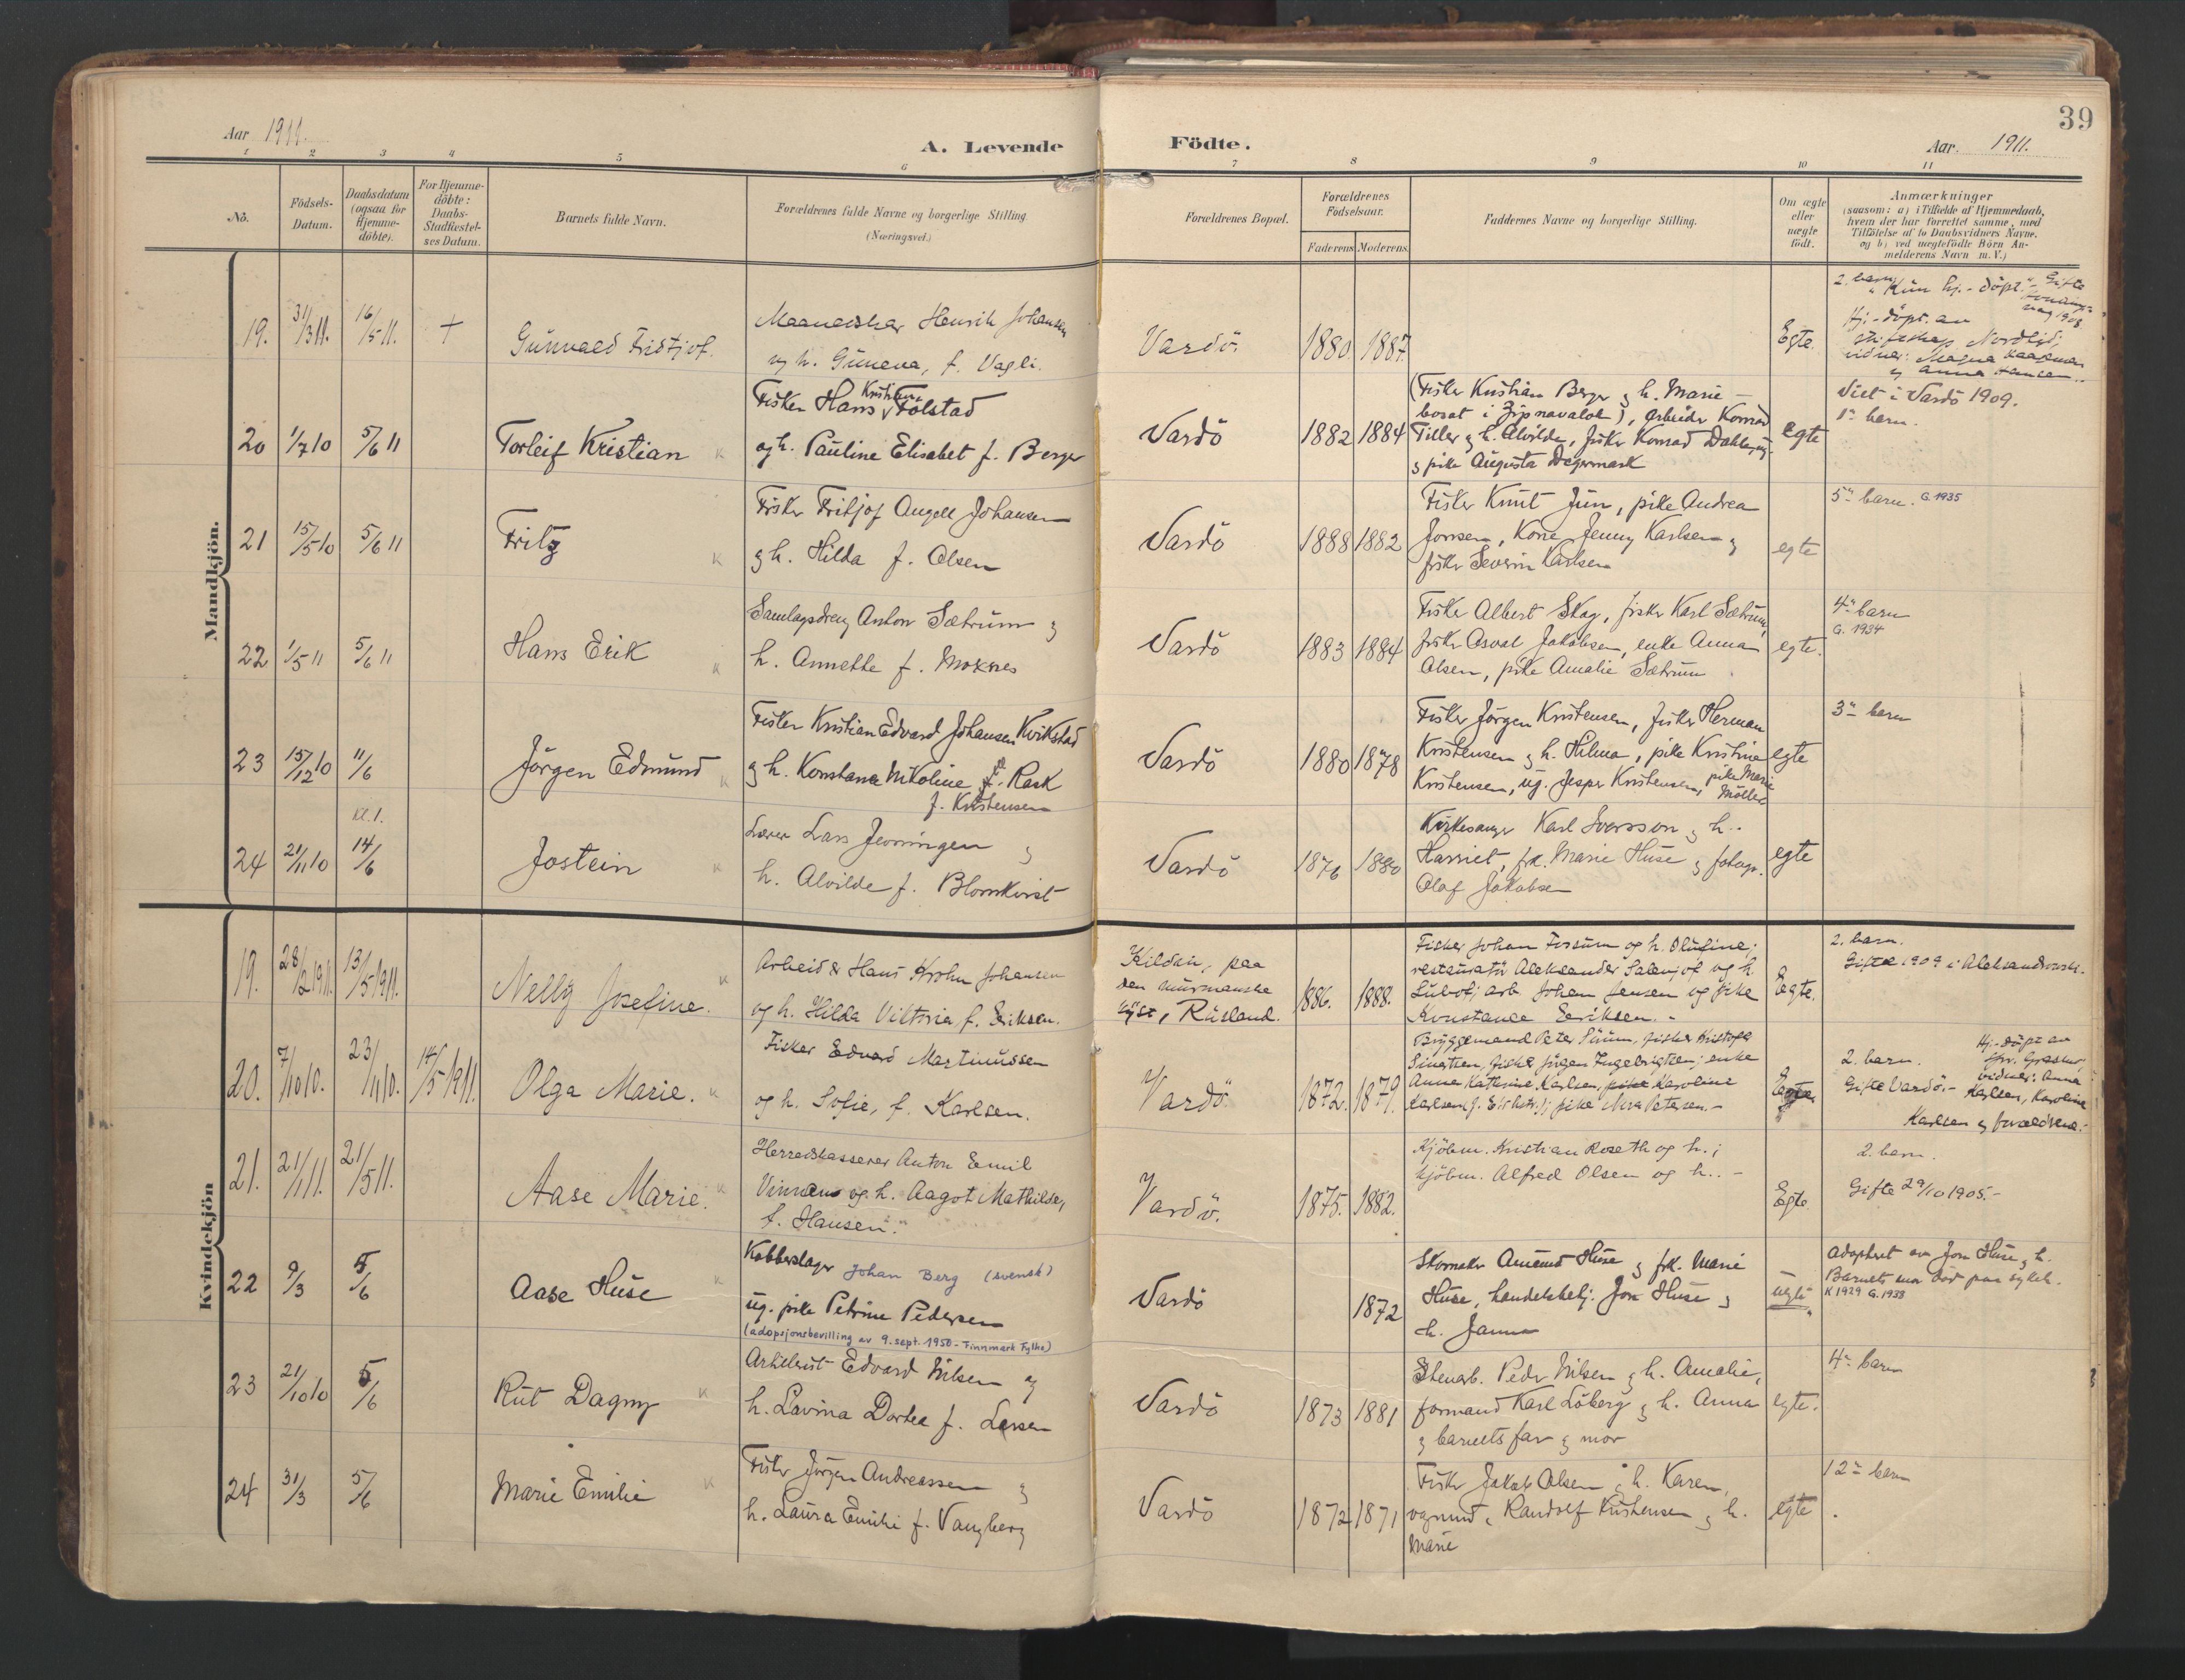 39
Aar 1911.
A. Levende Födte.
Aar. 1911.
1 2 3 4 5 6 7 8 9 10 11
No.
Födsels-
Datum.
Daabsdatum
(ogsaa for
Hjemme-
döbte).
For Hjemme-
döbte:
Daabs-
Stadfæstel-
ses Datum.
Barnets fulde Navn.
Forældrenes fulde Navne og borgerlige Stilling.
(Næringsvei.)
Forældrenes Bopæl.
Forældrenes
Födselsaar.
Faderens Moderens
Faddernes Navne og borgerlige Stilling.
Om ægte
eller
uægte
födt.
Anmærkninger
(saasom: a) i Tilfælde af Hjemmedaab,
hvem der har forrettet samme, med
Tilföielse af to Daabsvidners Navne.
og b) ved uægtefödte Börn An-
melderens Navn m. V.)
Mandkjön.
19. 31/3 11. 16/5 11. +
Gunvald Fridtjof.
Henrik Johansen
og h. Guneva, f. Vagli.
Vardö. 1880. 1887.
Egte.
2. barn
Kun hj.-döpt. Gifte
Hj.-döpt. av
Nordlid;
vidner: Magna
og Anna Hansen
20 1/7 10 5/6 11
Torleif Kristian
Fisker Hans Kristian Folstad
og h. Pauline Elisabet f. Berger
Vardö 1882 1884
(Fisker Kristian Berger og h. Marie –
bosat i Zipnavalok), arbeider Konrad
Tiller og h. Alvilde, fisker Konrad Dahl
og pike Augusta Degermark
egte
Viet i Vardö 1909.
1ste barn.
21 15/5 10 5/6 11
Fritz
K
Fisker Fritjof Angell Johansen
og h. Hilda f. Olsen
Vardö 1888 1882
Fisker Knut Jun, pike Andrea
Jonsen, Kone Jenny Karlsen og
fisker Severin Karlsen
egte
5te barn. G. 1935
22 1/5 11 5/6 11
Hans Erik
K
Samlagsdreng Anton Sætrum og
h. Annette f. Moxnes
Vardö 1883 1884
Fisker Albert Skog, fisker Karl Sætrum,
fisker Osvat Jakobsen, enke Anna
Olsen, pike Amalie Sætrum
egte.
4de barn
G. 1934
23 15/12 10 11/6
Jörgen Edmund
K
Fisker Kristian Edvard Johansen Kvikstad
og h. Konstance Nikoline f. Rask
f. Kristensen
Vardö 1880 1878
Fisker Jörgen Kristensen, fisker Herman
Kristensen og h. Hilma, pike Kristine
Kristensen, ug. Jesper Kristensen, pike Marie
Möller
egte
3de barn
24 21/11 10 kl. 1. 14/6
Jostein
K
Lærer Lars Jenningen og
h. Alvilde f. Blomkvist
Vardö 1876 1880
Kirkesanger Karl Sversson og h.
Harriet, frk. Marie Huse og fotogr.
Olaf Jakobsen
egte
Kvindekjön
19. 28/2 1911. 13/5 1911.
Nelly Josefine.
K
Arbeider Hans Krohn Johansen
og h. Hilda Viktoria f. Eriksen.
Kildin, paa
den murmanske
kyst, Rusland.
1886. 1888.
Fisker Johan Fossum og h. Olufine;
restauratör Aleksander Salenjof og h.
Lubof; arb. Johan Jensen og pike
Konstance Eriksen. –
Egte.
2. barn.
Gifte 1909 i Aleksandrovsk.
20. 7/10 10. 23/11 10. 14/5 1911.
Olga Marie.
K
Fisker Edvard Martinussen
og h. Sofie, f. Karlsen.
Vardö 1872. 1879.
Bryggemand Peter Simm, fisker Kristofer
Sivertsen, fisker Jörgen Ingebrigtsen; enke
Anna Katrine Karlsen, pike Karoline
Karlsen; pike Nora Petersen. –
Egte
2. barn.
Gifte Vardö. –
Hj.-döpt av
vidner: Anna
Karlsen, Karoline
Karlsen og forældrene. –
21. 21/1 11. 21/5 11.
Aase Marie.
K
Herredskasserer Anton Emil
Vinnans og h. Aagot Mathilde,
f. Hansen.
Vardö. 1875. 1882.
Kjöbm. Kristian Roseth og h.;
Kjöbm. Alfred Olsen og h.. –
Egte.
2. barn.
Gifte 29/10 1905. –
22 9/3 5/6
Aase Huse
K
Kobberslager Johan Berg (svensk)
ug. pike Petrine Pedersen
(adopsjonsbevilling av 9. sept. 1950 – Finnmark Fylke)
Vardö 1872
Skomaker Amund Huse og frk. Marie
Huse, handelsbetj. Jon Huse og
h. Janna
uegte
Adoptert av Jon Huse og h.
Barnets mor död paa sykeh.
K 1929 G. 1933
23 21/10 10 5/6
Rut Dagny
K
Arkitekt Edvard Nilsen og
h. Lavina Dortea f. Larsen
Vardö 1873 1881
Stenarb. Peder Nilsen og h. Amalie,
formand Karl Löberg og h. Anna
og barnets far og mor
egte.
4de barn
24 31/3 5/6
Marie Emilie
K
Fisker Jörgen Andreassen og
h. Laura Emilie f. Vangberg
Vardö 1872 1871
Fisker Jakob Olsen og h. Karen,
vognmd. Randolf Kristensen og h.
Marie
egte
12te barn